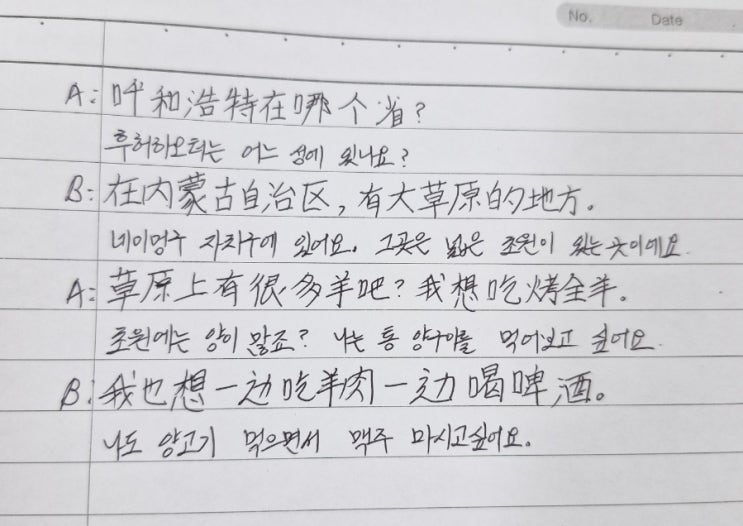 No. Date
A: 呼和浩特在哪个省?
후허하오터는 어느 성에 있나요?
B: 在内蒙古自治区, 有大草原的地方。
네이멍구 자치구에 있어요. 그곳은 넓은 초원이 있는 곳이에요.
A: 草原上有很多羊吧? 我想吃烤全羊。
초원에는 양이 많죠? 나는 통 양구이를 먹어보고 싶어요.
B: 我也想一边吃羊肉一边喝啤酒。
나도 양고기 먹으면서 맥주 마시고싶어요.